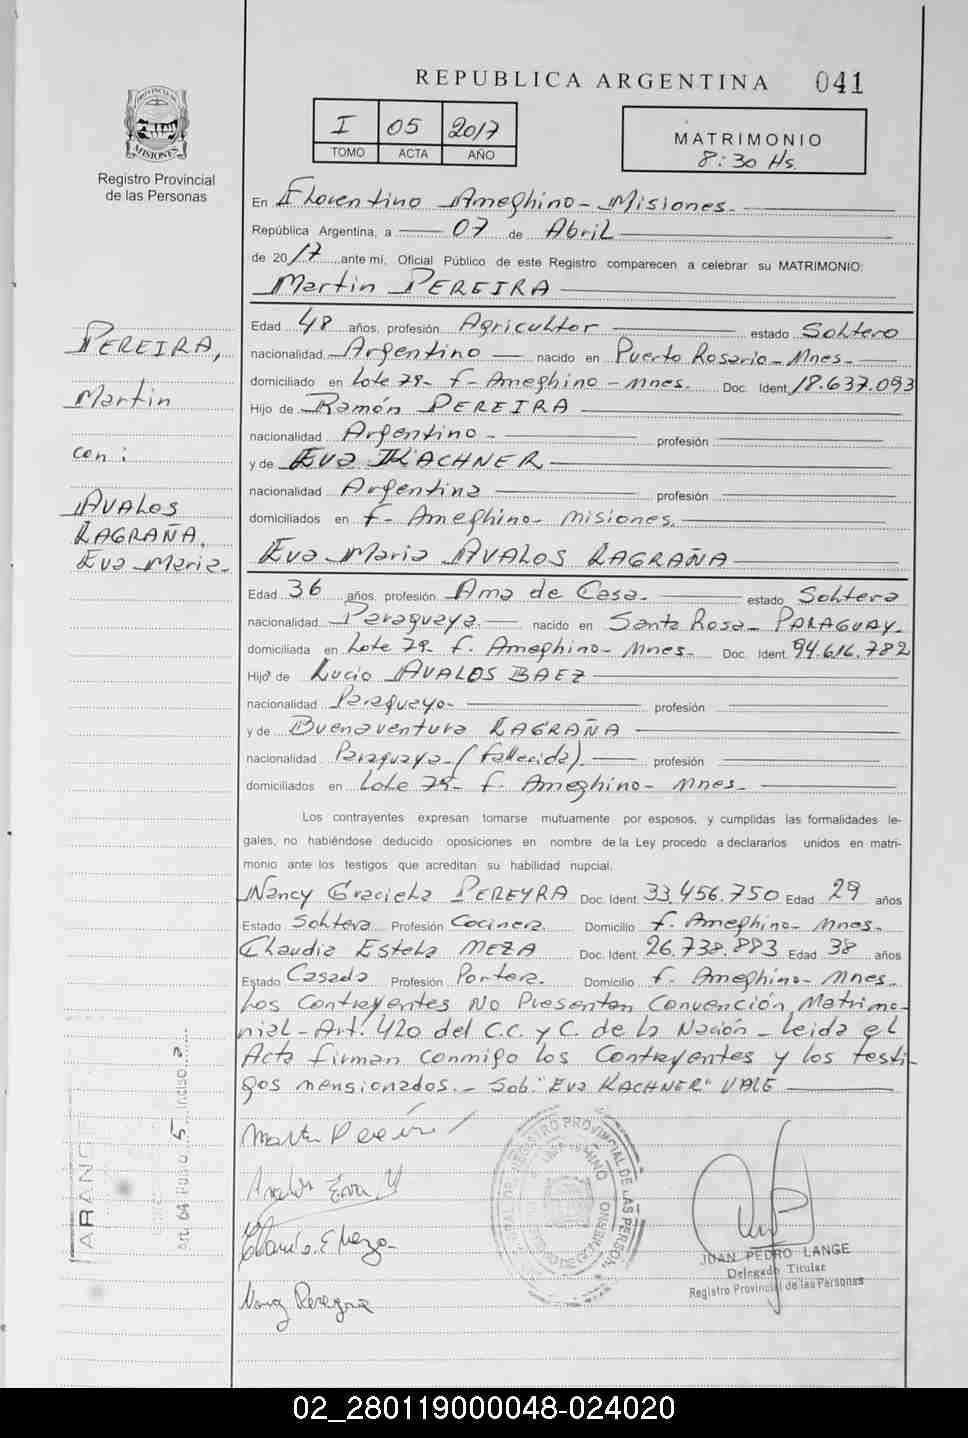 REPUBLICA ARGENTINA 041
PROVINCIA DE
MISIONES
Registro Provincial
de las Personas
I 05 2017
TOMO ACTA AÑO
MATRIMONIO
8:30 Hs.
En Florentino Ameghino - Misiones.
República Argentina, a 07 de Abril
de 2017 ante mí, Oficial Público de este Registro comparecen a celebrar su MATRIMONIO:
Martin PEREIRA
Edad 48 años, profesión Agricultor estado Soltero
nacionalidad Argentino nacido en Puerto Rosario - Mnes.
domiciliado en Lote 79 - F. Ameghino - Mnes. Doc. Ident. 18.637.093
Hijo de Ramón PEREIRA
nacionalidad Argentino - profesión
y de Eva KACHNER
nacionalidad Argentina profesión
domiciliados en F. Ameghino - Misiones.
Eva Maria AVALOS LAGRAÑA
PEREIRA,
Martin
con:
AVALOS
LAGRAÑA.
Eva Maria.
Edad 36 años, profesión Ama de Casa. estado Soltera
nacionalidad Paraguaya. nacido en Santa Rosa - PARAGUAY.
domiciliada en Lote 79 - F. Ameghino - Mnes. Doc. Ident. 94.616.782
Hija de Lucio AVALOS BAEZ
nacionalidad Paraguayo - profesión
y de Buenaventura LAGRAÑA
nacionalidad Paraguaya - (fallecida). profesión
domiciliados en Lote 79 - F. Ameghino - Mnes.
Los contrayentes expresan tomarse mutuamente por esposos, y cumplidas las formalidades le-
gales, no habiéndose deducido oposiciones en nombre de la Ley procedo a declararlos unidos en matri-
monio ante los testigos que acreditan su habilidad nupcial.
Nancy Graciela PEREYRA Doc. Ident. 33.456.750 Edad 29 años
Estado Soltera Profesión Cocinera. Domicilio F. Ameghino - Mnes.
Claudia Estela MEZA Doc. Ident. 26.738.883 Edad 38 años
Estado Casada Profesión Portera. Domicilio F. Ameghino - Mnes.
Los Contrayentes No Presentan Convención Matrimo-
nial - Art. 420 del C.C. y C. de la Nación - Leida el
Acta firman conmigo los Contrayentes y los testi-
gos mensionados. - Sob. "Eva KACHNER" VALE
REGISTRO PROVINCIAL DE LAS PERSONAS
JUAN PEDRO LANGE
Delegado Titular
Registro Provincial de las Personas
02_280119000048-024020